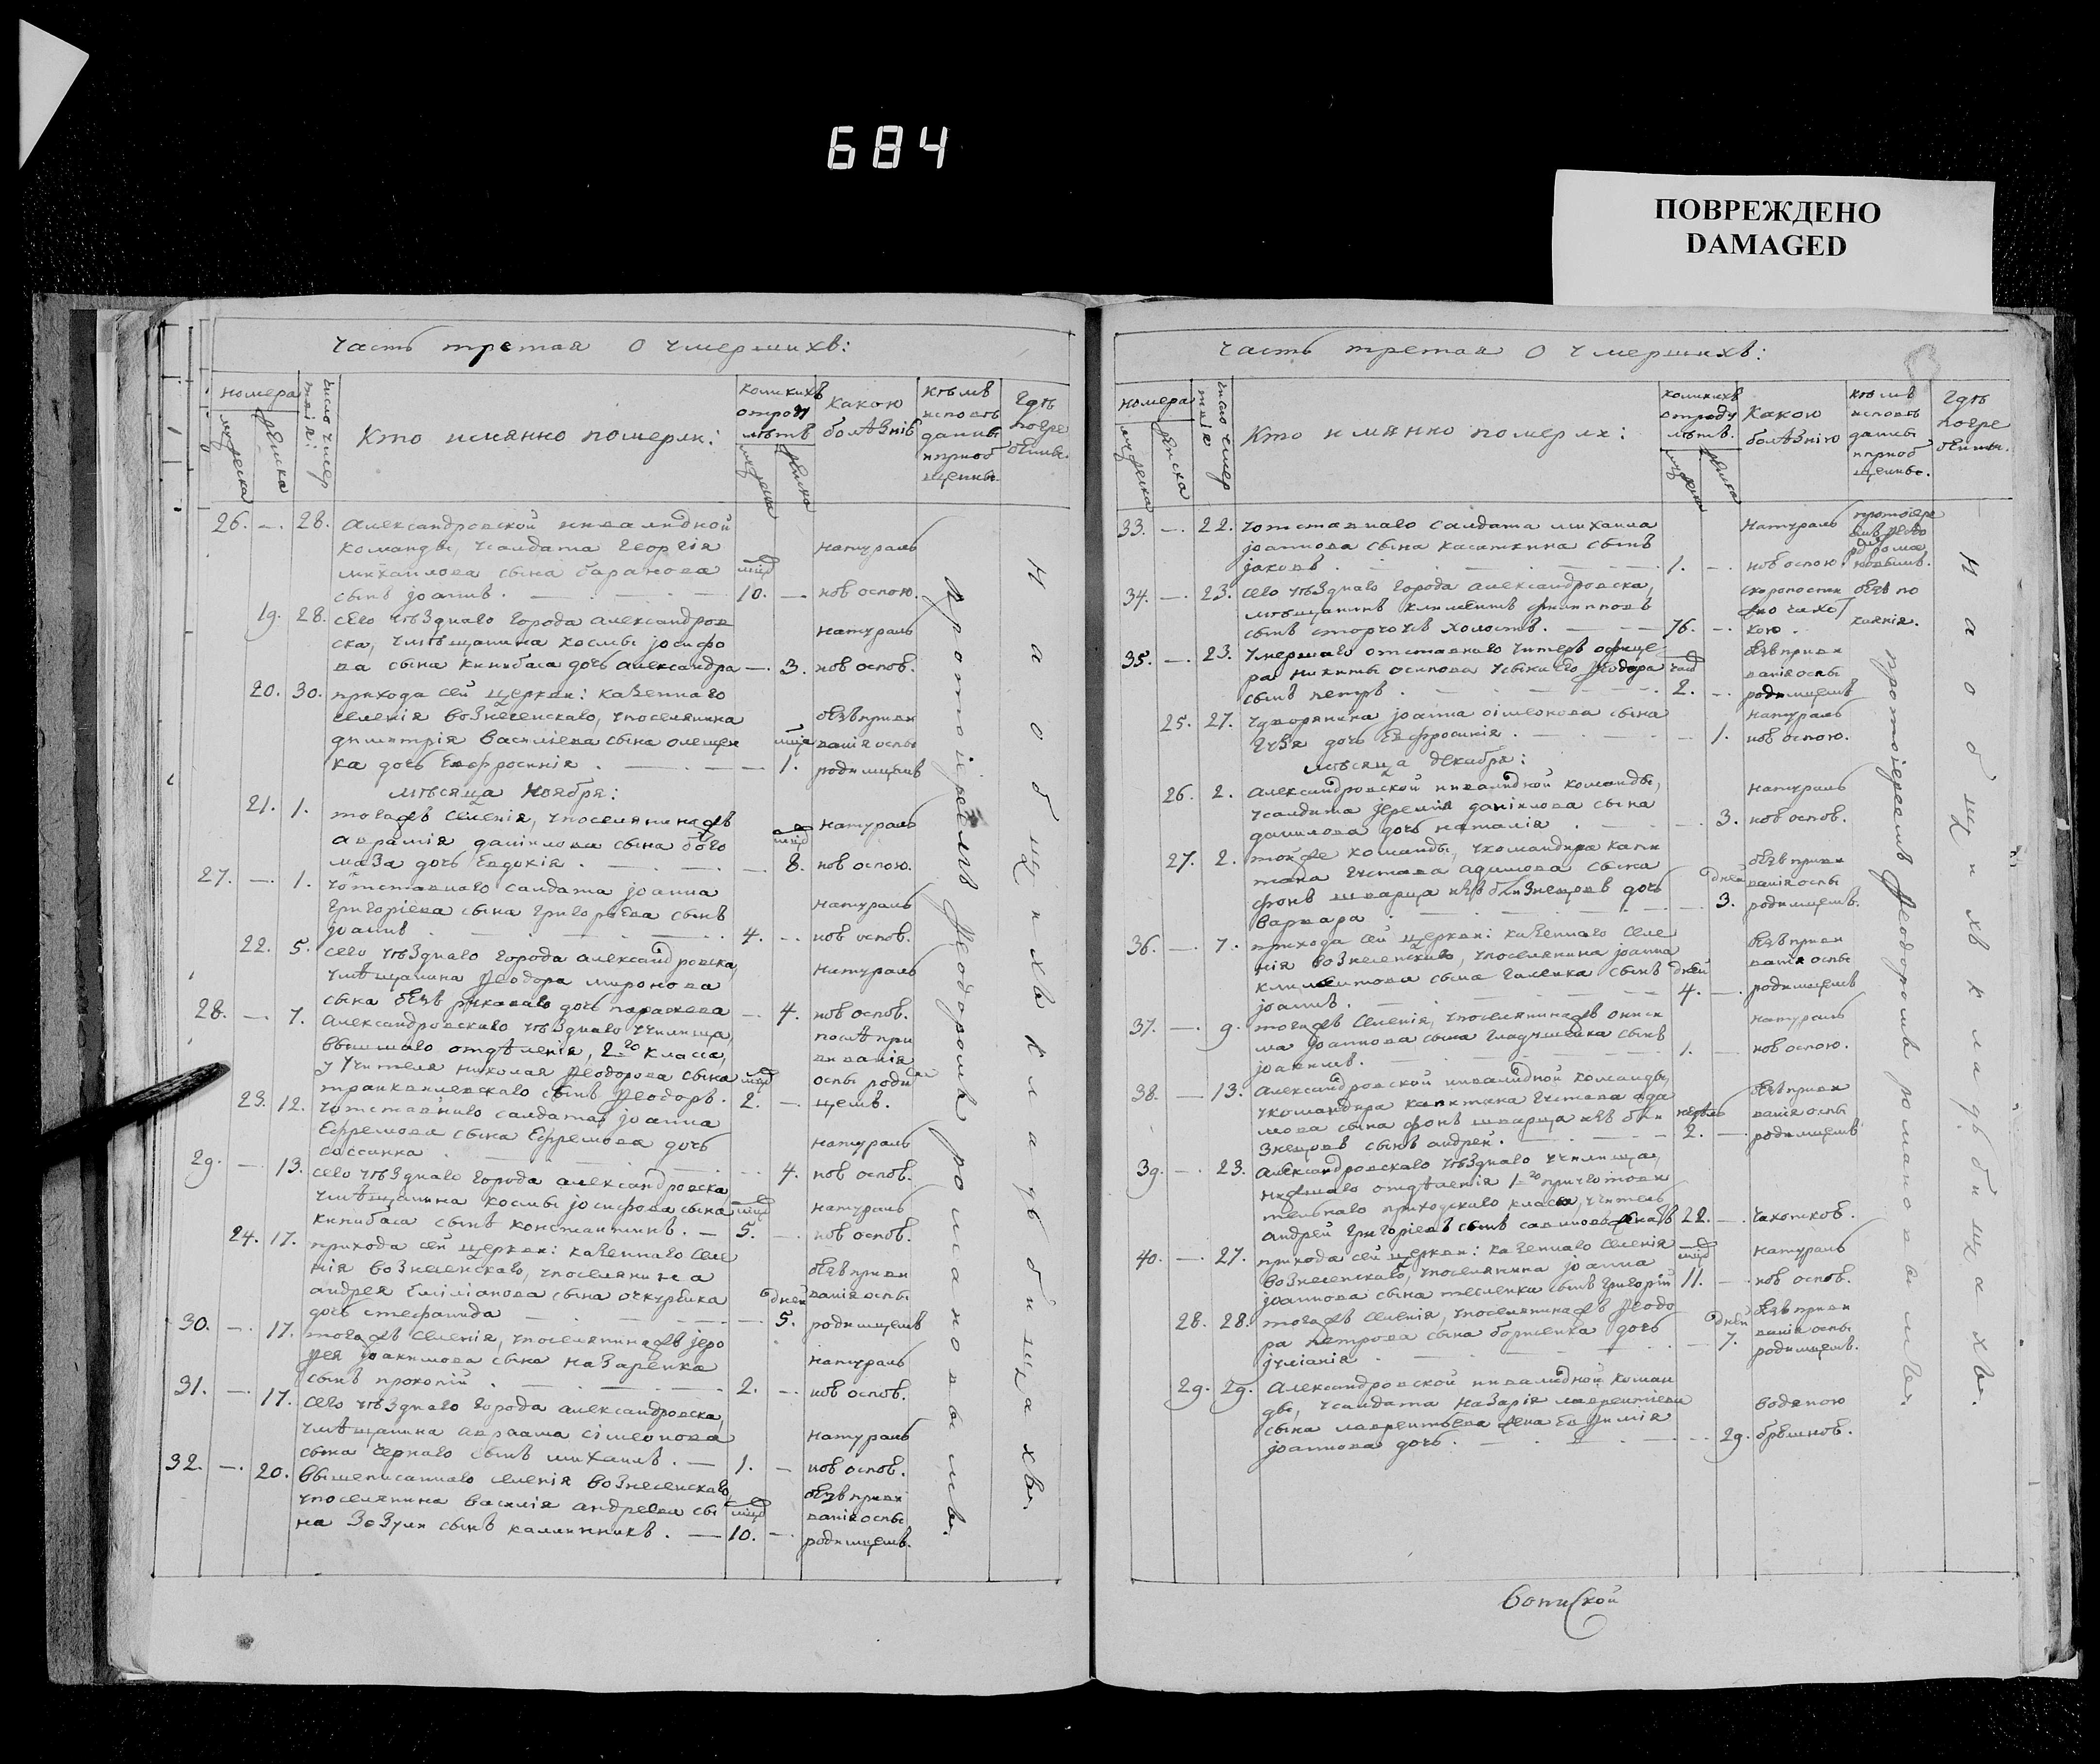 684
ПОВРЕЖДЕНО
DAMAGED
Часть третая о умершихъ:
номера
мужеска
женска
Кто имянно померли:
Какою
болѣзнію
Гдѣ
погре
бены.
26. —. 28. Александровской инвалидной
команды, усалдата Георгія
михаилова сына баранова
сынъ іоаннъ. 10. —
натураль
ной оспою.
19. 28. сего уѣзднаго города александров
ска, умѣщанина космы іосифо
ва сына кинибаса дочь александра —. 3.
натураль
ной оспой.
20. 30. прихода сей церкви: казеннаго
селенія вознесенскаго, упоселянина
димитрія василіева сына олещен
ка дочь Евфросинія. 1.
безъ приви
ванія оспы
родимцемъ
мѣсяца Ноября:
21. 1. тогожъ селенія, упоселянинажъ
даніилова сына бого
маза дочь Евдокія. 8.
натураль
ной оспою.
27. —. 1. уотставнаго салдата іоанна
Григоріева сына григорьева сынъ
іоаннъ 4. —
натураль
ной оспой.
22. 5. сего уѣзднаго города александровска,
умѣщанина Ѳеодора миронова
сына дочь —. 4.
натураль
ной оспой.
28. —. 7. Александровскаго уѣзднаго училища,
вышшаго отдѣленія, 2го класса,
у учителя николая Ѳеодорова сына
сынъ Ѳеодоръ. 2. —
послѣ при
виванія
оспы родим
цемъ.
23. 12. уотставнаго салдата іоанна
Ефремова сына Ефремова дочь
4.
натураль
ной оспой.
29. —. 13. сего уѣзднаго города александровска,
умѣщанина космы іосифова сына
кинибаса сынъ константинъ. — 5. —
натураль
ной оспой.
24. 17. прихода сей церкви: казеннаго селе
нія вознесенскаго, упоселянина
андрея Емиліанова сына
дочь стефанида дней 5.
безъ приви
ванія оспы
родимцемъ
30. —. 17. тогожъ селенія, упоселянинажъ іеро
ѳея іоакимова сына назаренка
сынъ прокопій. 2. —
натураль
ной оспой.
31. —. 17. сего уѣзднаго города александровска,
умѣщанина авраама сімеонова
сына чернаго сынъ михаилъ. — 1. —
натураль
ной оспой.
32. —. 20. вышеписаннаго селенія вознесенскаго,
упоселянина василія андреева сы
на зозули сынъ каллинникъ. — 10. —
безъ приви
ванія оспы
родимцемъ.
протоіереемъ Ѳеодоромъ романовымъ.
на общихъ кладбищахъ.
Часть третая о умершихъ:
номера
мужеска
женска
Кто имянно померли:
Какою
болѣзнію
Гдѣ
погре
бены.
33. —. 22. уотставнаго салдата михаила
іоаннова сына касаткина сынъ
іаковъ. 1. —
натураль
ной оспою.
34. —. 23. сего уѣзднаго города александровска,
мѣщанинъ климентъ филипповъ
сынъ холостъ. 76. —.
скоропостиж
но чахот
кою.
безъ по
каянія.
35. —. 23. умершаго отставнаго унтеръ офице
ра никиты осипова усына его Ѳеодора
сынъ петръ. 2. —.
безъ приви
ванія оспы
родимцемъ
25. 27. удворянина іоанна сімеонова сына
дочь Евфросинія. 1.
натураль
ной оспою.
мѣсяца декабря:
26. 2. Александровской инвалидной команды,
усалдата іеремія даніилова сына
данилова дочь наталія. 3.
натураль
ной оспой.
27. 2. тойже команды, укомандира капи
тана густава адамова сына
фонъ шварца изъ близнецовъ дочь
варвара. дней 3.
безъ приви
ванія оспы
родимцемъ.
36. —. 7. прихода сей церкви: казеннаго селе
нія вознесенскаго, упоселянина іоанна
климентова сына галенка сынъ
іоаннъ. дней 4. —.
безъ приви
ванія оспы
родимцемъ
37. —. 9. тогожъ селенія, упоселянинажъ
іоаннова сына сынъ
іоаннъ. 1. —
натураль
ной оспою.
38. —. 13. Александровской инвалидной команды,
укомандира капитана густава ада
мова сына фонъ шварца изъ бли
знецовъ сынъ андрей. недѣль 2. —.
безъ приви
ванія оспы
родимцемъ
39. —. 23. Александровскаго уѣзднаго училища,
нижшаго отдѣленія 1го приготови
тельнаго приходскаго класса, учитель
андрей григоріевъ сынъ 22. —.
чахоткой.
40. —. 27. прихода сей церкви: казеннаго селенія
вознесенскаго, упоселянина іоанна
іоаннова сына тесленка сынъ григорій 11. —
натураль
ной оспой.
28. 28. тогожъ селенія, упоселянинажъ Ѳеодо
ра петрова сына дочь
іуліанія. дней 7.
безъ приви
ванія оспы
родимцемъ.
29. 29. Александровской инвалидной коман
ды, усалдата назарія лаврентіева
сына лаврентьева жена Евфимія
іоаннова дочь. 29.
водяною
протоіереемъ Ѳеодоромъ романовымъ.
на общихъ кладбищахъ.